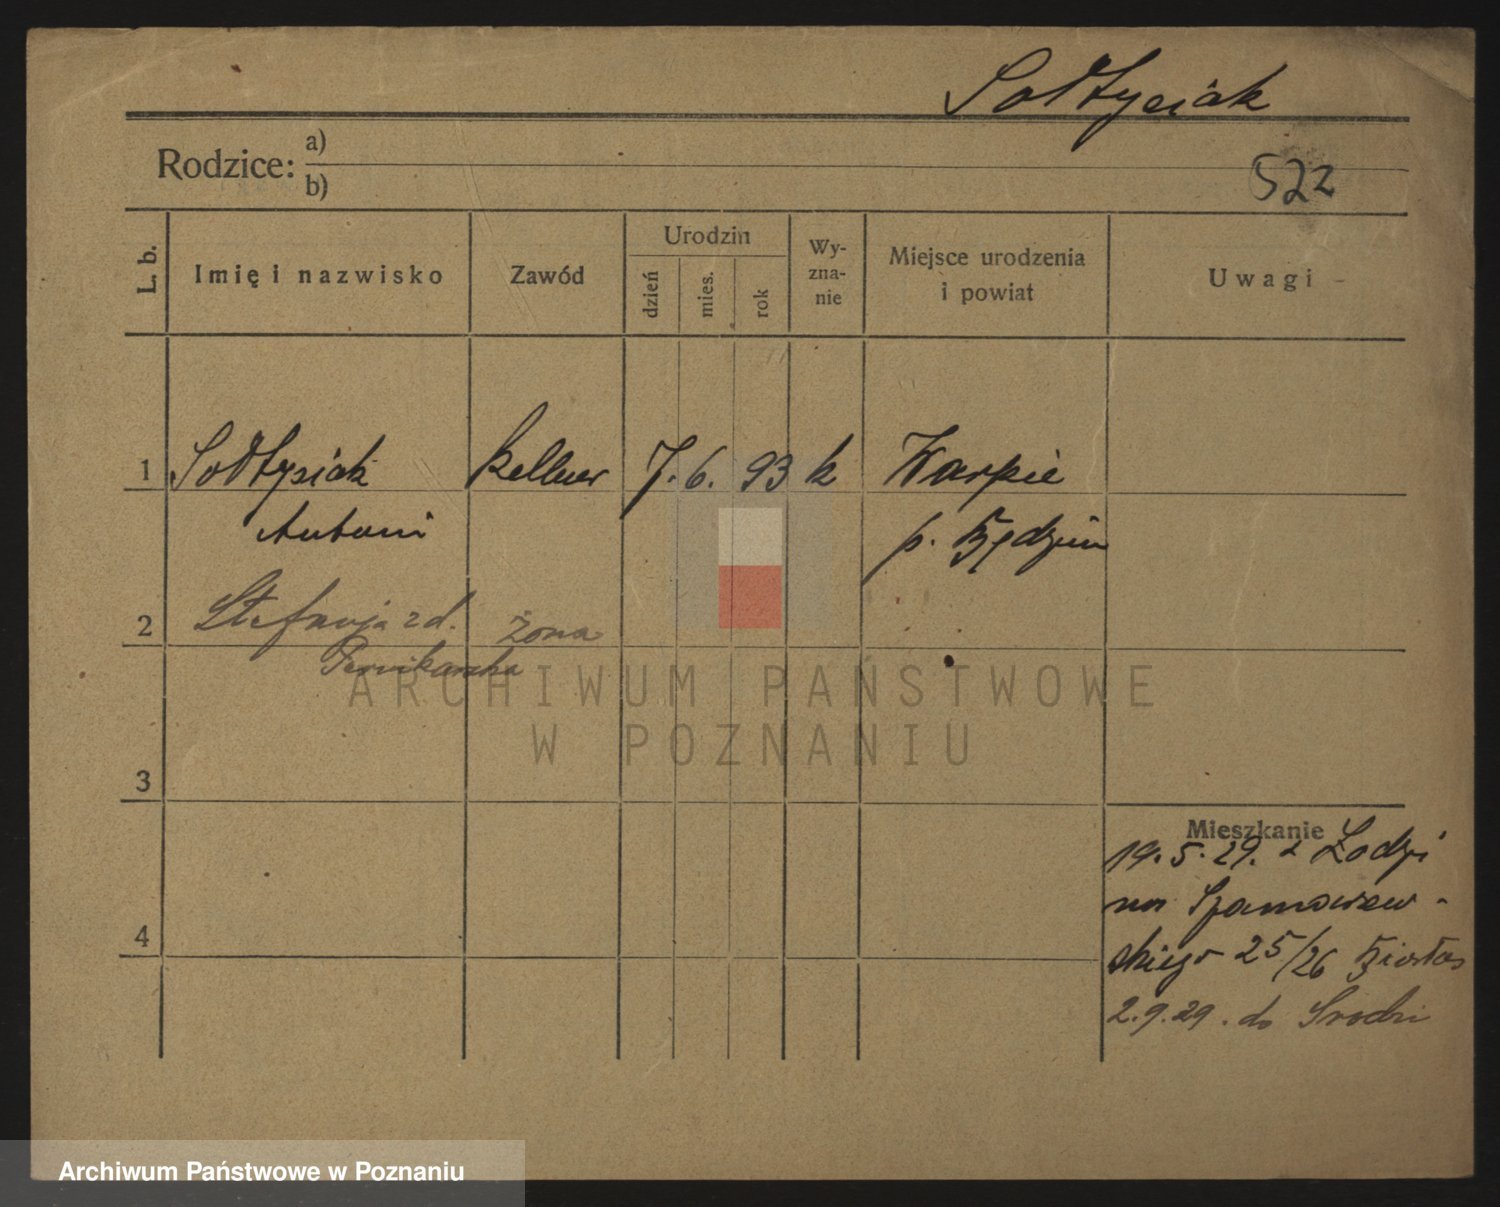 Sołtysiak
Rodzice: a)
b)
522
L. b.
Imię i nazwisko
Zawód
Urodzin
dzień
mies.
rok
Wy-
zna-
nie
Miejsce urodzenia
i powiat
Uwagi
1 Sołtysiak Kellner 7. 6. 93 k Warpie
Antoni p. Będzin
2 Stefanja zd. żona
3
Mieszkanie
19. 5. 29. z Łodzi
na Szamarzew-
skiego 25/26
4
2. 9. 29. do
ARCHIWUM PAŃSTWOWE
W POZNANIU
Archiwum Państwowe w Poznaniu